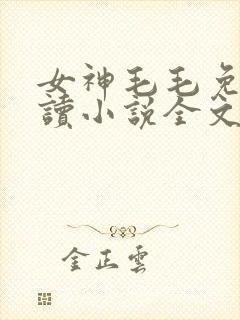 女神毛毛免
讀小說全文
金正雲